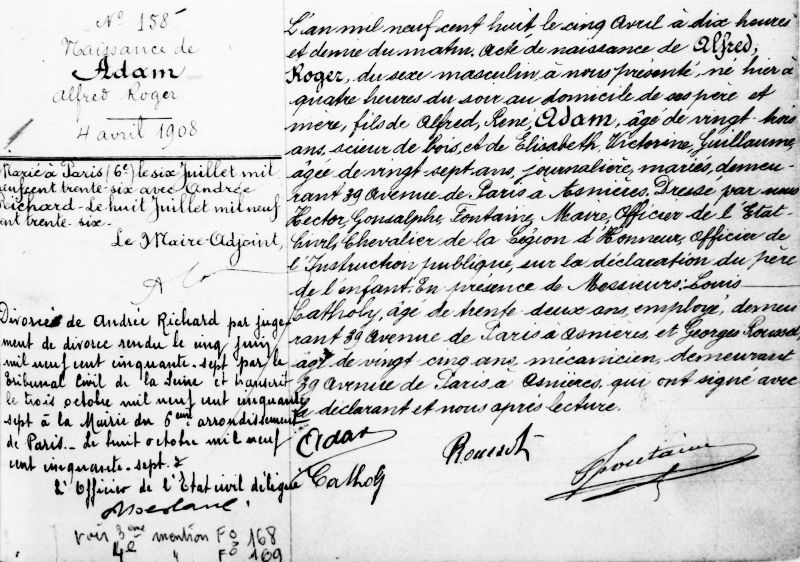 N° 158
Naissance de
Adam
Alfred Roger
4 avril 1908
Marié à Paris (6e) le six Juillet mil
neuf cent trente-six avec Andrée
Richard - Le huit Juillet mil neuf
cent trente-six -
Le Maire-Adjoint,
Divorcé de Andrée Richard par juge-
ment de divorce rendu le cinq juin
mil neuf cent cinquante-sept par le
Tribunal Civil de la Seine et transcrit
le trois octobre mil neuf cent cinquante
sept à la Mairie du 6ème arrondissement
de Paris. - Le huit octobre mil neuf
cent cinquante-sept.
L'Officier de l'Etat civil délégué
voir 3ème mention Fo 168
4e " Fo 169
L'an mil neuf cent huit, le cinq Avril à dix heures
et demie du matin. Acte de naissance de Alfred,
Roger, du sexe masculin, à nous présenté, né hier à
quatre heures du soir au domicile de ses père et
mère, fils de Alfred, René, Adam, âgé de vingt-trois
ans, scieur de bois, et de Elisabeth, Victorine, Guillaume,
âgée de vingt-sept ans, journalière, mariés, demeu-
rant 39 Avenue de Paris à Asnières. Dressé par nous
Hector, Gonsalphe, Fontaine, Maire, Officier de l'Etat-
Civil, Chevalier de la Légion d'Honneur, Officier de
l'Instruction publique, sur la déclaration du père
de l'enfant. En présence de Messieurs: Louis
Catholy, âgé de trente deux ans, employé, demeu
rant 39 Avenue de Paris à Asnières, et Georges Roussot,
âgé de vingt cinq ans, mécanicien, demeurant
39 Avenue de Paris à Asnières, qui ont signé avec
le déclarant et nous après lecture.
Adam
Roussot
Fontaine
Catholy